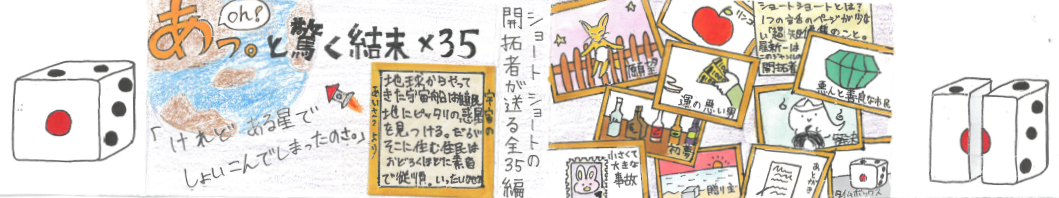 oh!
あっ。と驚く結末×35
「けれど ある星で
しょいこんでしまったのさ。」
宇宙の
あいさつ より!
地球からやって
きた宇宙船は植民
地にピッタリの惑星
を見つける。だが
そこに住む住民は
おどろくほどに素直
で従順。いったいなぜ
ショートショートの
開拓者が送る全35編
願望
リンゴ
ショートショートとは?
1つのお話のページが少な
い「超」短編集のこと。
星新一は
このジャンルの
開拓者
運の悪い男
悪人と善良な市民
初夢
小さくて
大きな
事故
贈り主
あとがき
タイムボックス